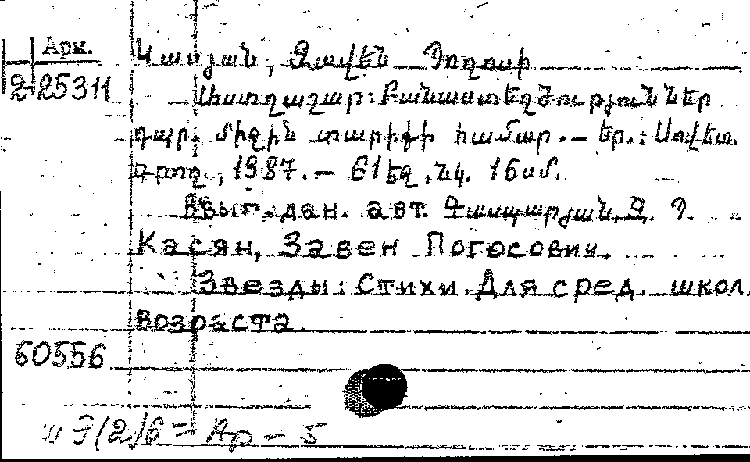 Арм.
2-25311
Կասյան, Զավեն Պողոսի
Աստղաշար: Բանաստեղծություններ
դպր. միջին տարիքի համար. — Եր.: Սովետ.
գրող, 1987. — 61 եջ, նկ. 16 սմ.
Ввып. дан. авт. Գասպարյան Զ. Պ.
Касян, Завен Погосович.
Звезды: Стихи. Для сред. школ.
возраста.
60556